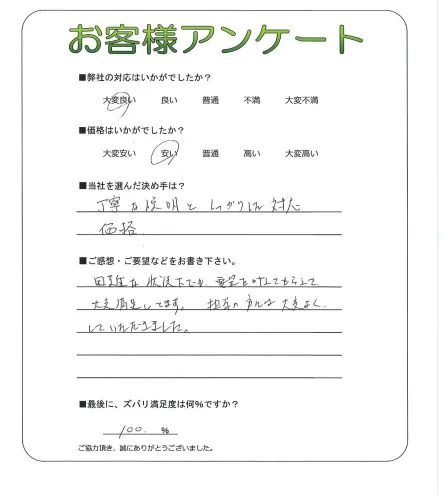 お客様アンケート
■弊社の対応はいかがでしたか?
大変良い 良い 普通 不満 大変不満
■価格はいかがでしたか?
大変安い 安い 普通 高い 大変高い
■当社を選んだ決め手は?
丁寧な説明としっかりした対応
価格
■ご感想・ご要望などをお書き下さい。
困難な状況下でも、要望を叶えてもらえて
大変満足してます。 担当の方には大変よく
していただきました。
■最後に、ズバリ満足度は何%ですか?
100. %
ご協力頂き、誠にありがとうございました。